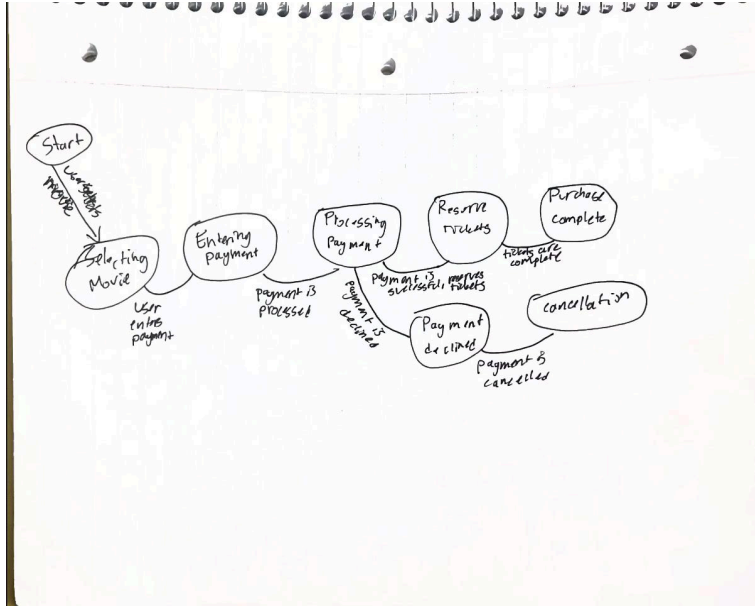 Start
User selects
movie
Selecting
Movie
User
enters
payment
Entering
payment
payment is
processed
Processing
Payment
payment is
successful, reserves
tickets
Reserve
tickets
tickets are
complete
Purchase
complete
payment is
declined
Payment
declined
payment is
cancelled
cancellation